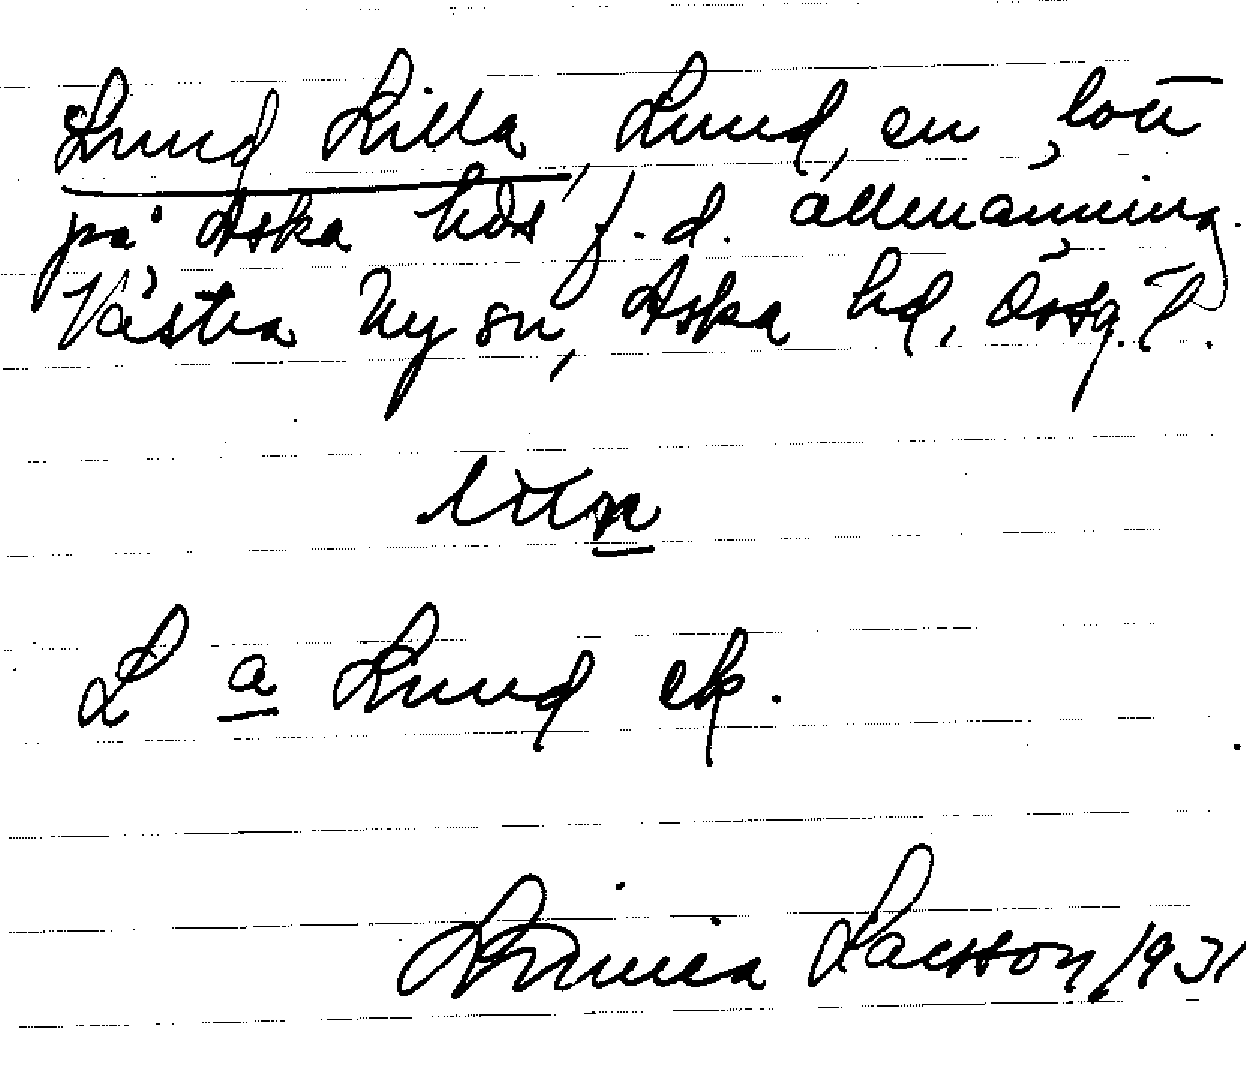 Lund Lilla, Lund, en lott
på Aska hds f.d. allmänning.
Västra Ny sn, Aska hd, Östg. l.
L a Lund ek.
Larsson 1931